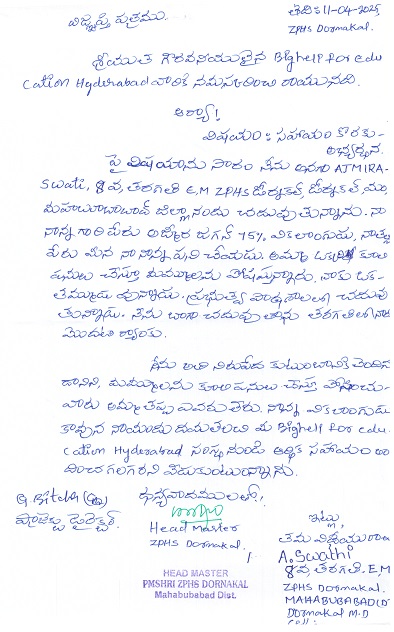 విజ్ఞప్తి పత్రము.
తేది: 11-04-2025,
ZPHS Dornakal.
శ్రీయుత గౌరవనీయులైన Bighelp for edu
cation Hyderabad వారికి నమస్కరించి రాయునది.
ఆర్యా!
విషయం: సహాయం కొరకు
అభ్యర్థన.
పై విషయాను సారం నేను అనగా ATMIRA-
Swati, 8వ, తరగతి E.M ZPHS డోర్నకల్, డోర్నకల్, మం,
మహబూబాబాద్ జిల్లా నందు చదువు తున్నాను. నా
నాన్న గారి పేరు జగన్ 75% వికలాంగుడు,
పేరు మీన నా నాన్న పని చేయడు. అమ్మ కూలి
పనులు చేస్తూ మమ్మల్ని పోషిస్తున్నారు. నాకు ఒక
తమ్ముడు వున్నాడు. ప్రభుత్వ పాఠశాలలో చదువు
తున్నాడు. నేను బాగా చదువు తాను తరగతిలో నాది
మొదటి ర్యాంకు.
నేను అతి నిరుపేద కుటుంబానికి చెందిన
దానిని, మమ్మల్ను కూలి పనులు చేస్తూ పోషించు
వారు అమ్మ తప్ప ఎవరూ లేరు. నాన్న వికలాంగుడు
కావున నాయందు దయతలచి మీ Bighelp for edu.
cation Hyderabad సంస్థ నుండి ఆర్థిక సహాయం అం
దించ గలరని వేడుకుంటున్నాను.
ధన్యవాదములతో!
ప్రాజెక్టు డైరెక్టర్.
Head Master
ZPHS Dornakal.
HEAD MASTER
PMSHRI ZPHS DORNAKAL
Mahabubabad Dist.
ఇట్లు
తమ విధేయురాలు
A. Swathi
8వ, తరగతి. E.M
ZPHS Dornakal.
MAHABUBABAD(D)
Dornakal M.D
Cell: